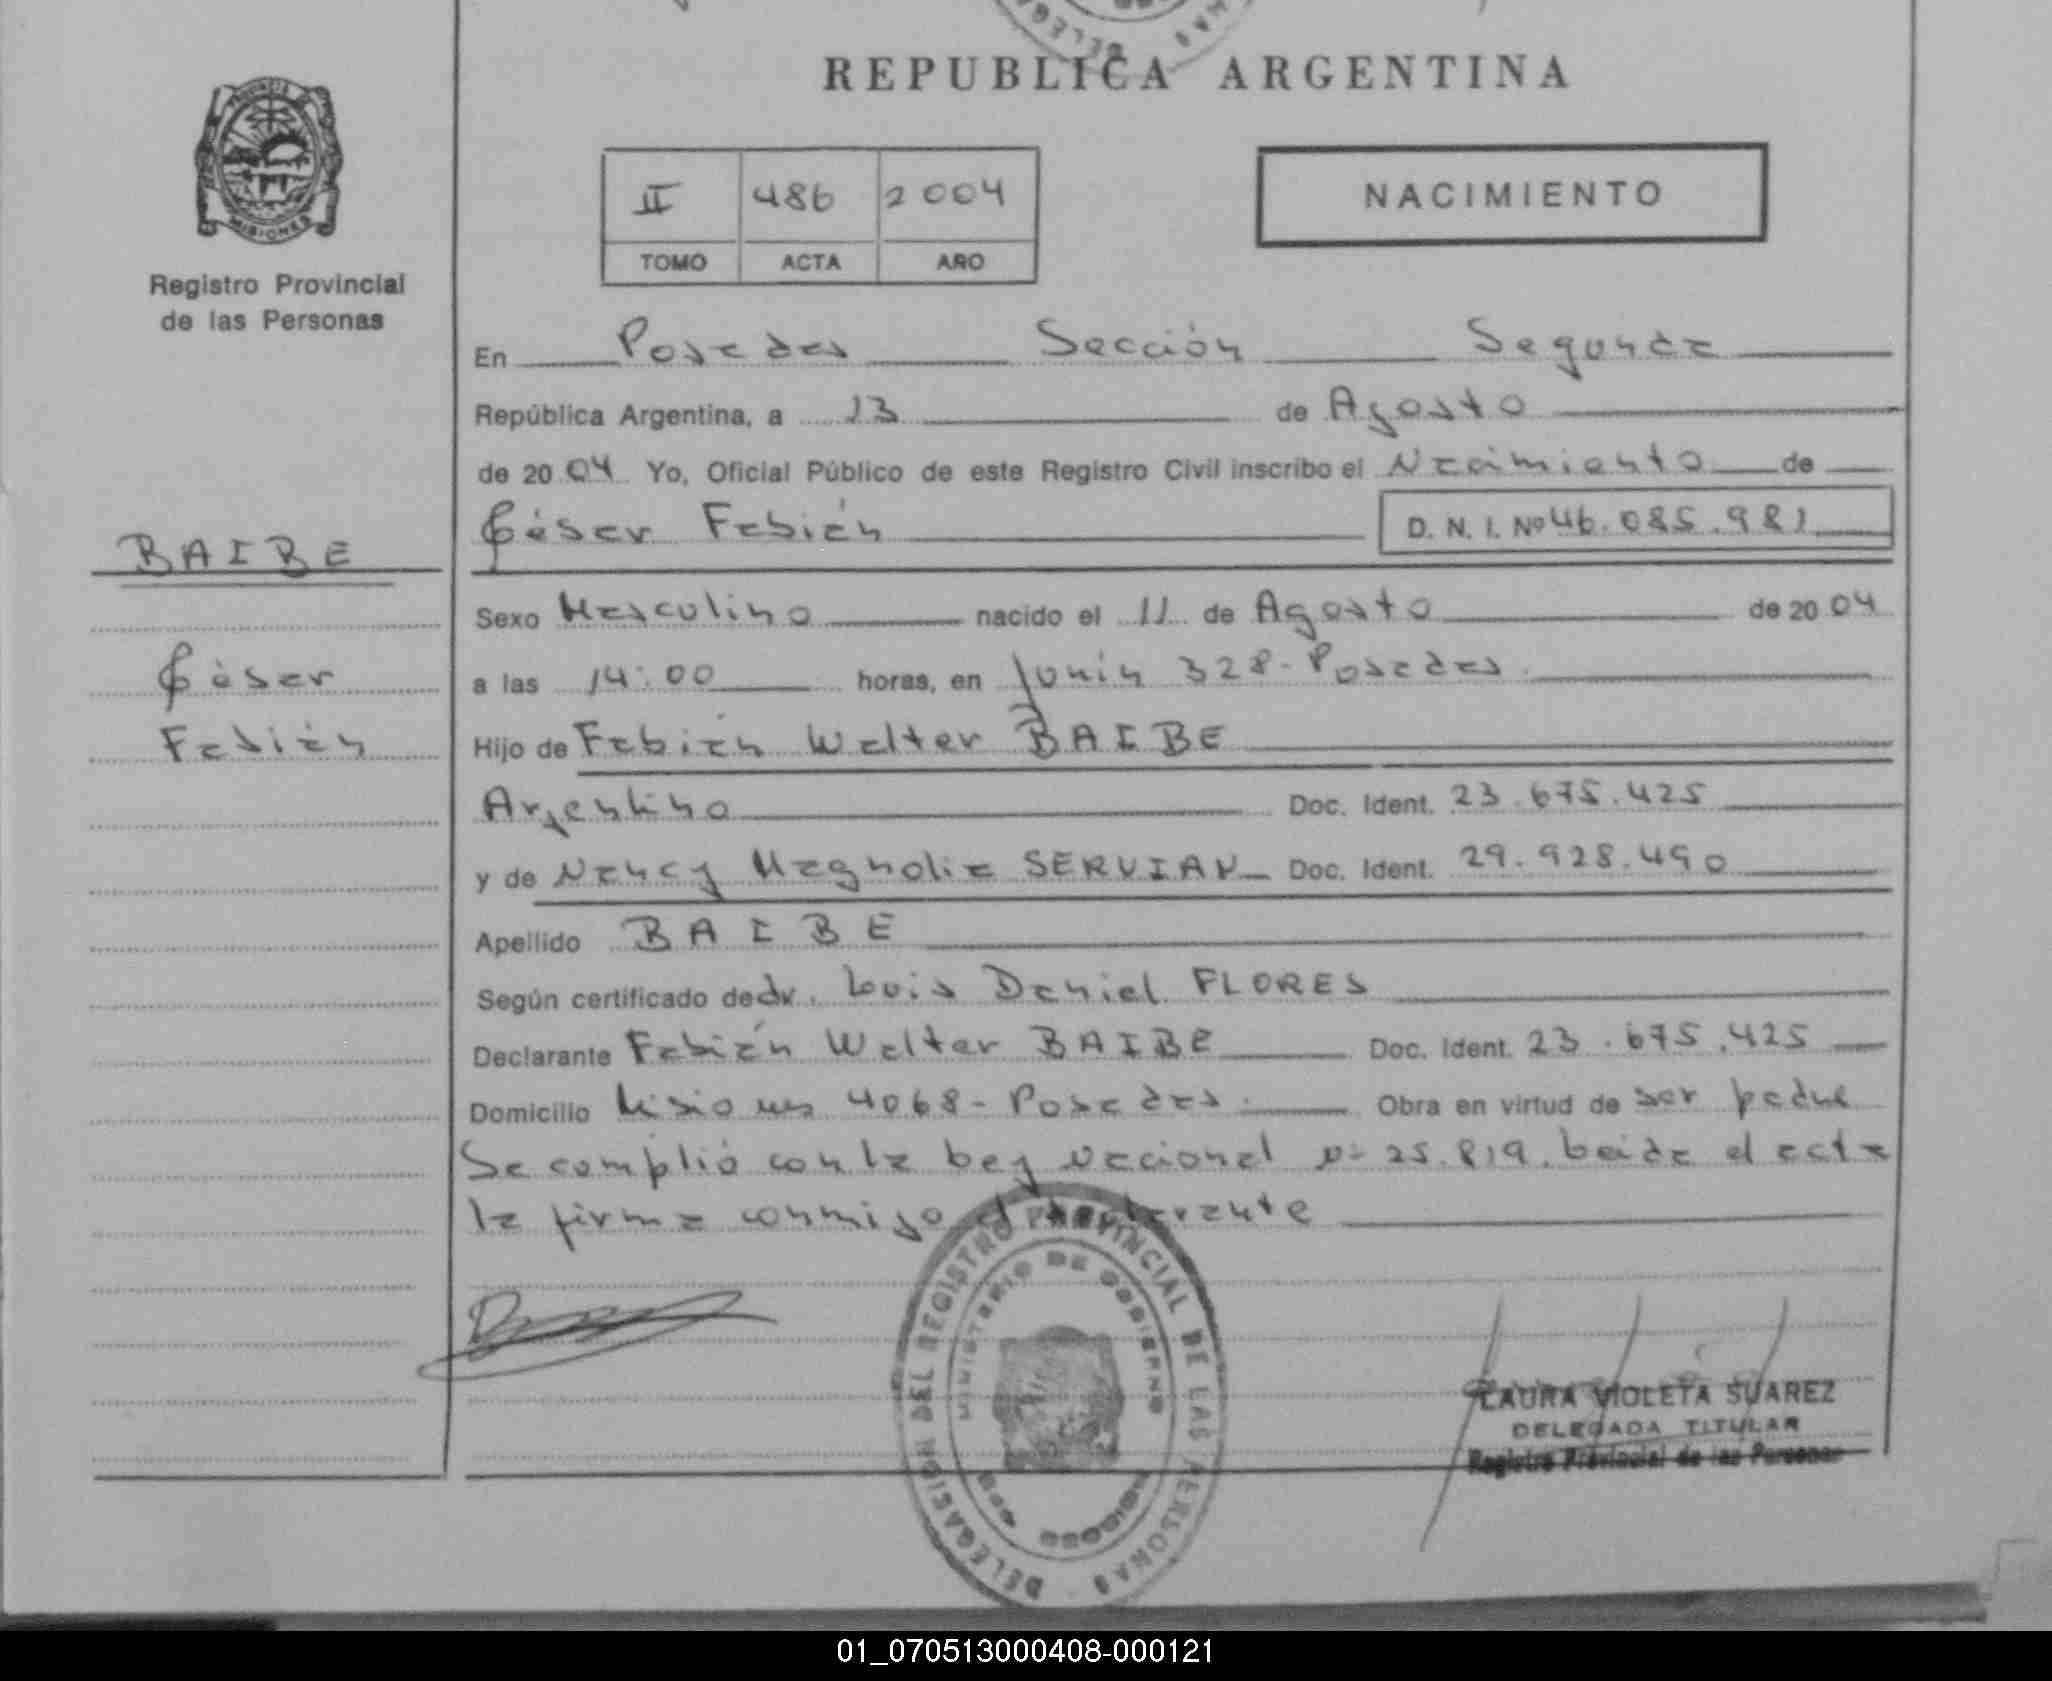 REPUBLICA ARGENTINA
PROVINCIA DE
MISIONES
Registro Provincial
de las Personas
II 486 2004
TOMO ACTA AÑO
NACIMIENTO
En Posadas Sección Segunda
República Argentina, a 13 de Agosto
de 2004 Yo, Oficial Público de este Registro Civil inscribo el Nacimiento de
César Fabián D. N. I. Nº 46.085.981
BAIBE
César
Fabián
Sexo Masculino nacido el 11 de Agosto de 2004
a las 14:00 horas, en Junín 328 - Posadas.
Hijo de Fabián Walter BAIBE
Argentino Doc. Ident. 23.675.425
y de Nancy Magnolia SERVIAN Doc. Ident. 29.928.490
Apellido BAIBE
Según certificado de dr. Luis Daniel FLORES
Declarante Fabián Walter BAIBE Doc. Ident. 23.675.425
Domicilio Misiones 4068 - Posadas. Obra en virtud de ser padre
Se complió con la Ley Nacional nº 25.819. Leida el acta
la firma conmigo el declarante
DELEGACION DEL REGISTRO PROVINCIAL DE LAS PERSONAS
MINISTERIO DE GOBIERNO
LAURA VIOLETA SUAREZ
DELEGADA TITULAR
Registro Provincial de las Personas
01_070513000408-000121